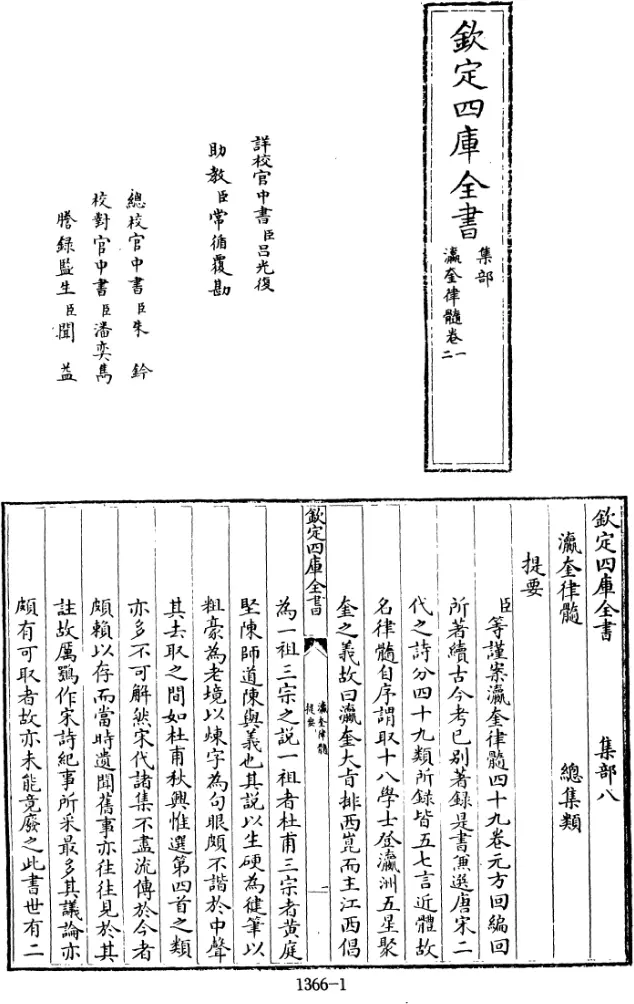 欽定四庫全書
集部
瀛奎律髓卷一
二
詳校官中書臣呂光復
助教臣常循覆勘
總校官中書臣朱鈐
校對官中書臣潘奕雋
謄錄監生臣聞益
欽定四庫全書 集部八
瀛奎律髓 總集類
提要
臣等謹案瀛奎律髓四十九卷元方回編回
所著續古今考已别著錄是書兼選唐宋二
代之詩分四十九類所錄皆五七言近體故
名律髓自序謂取十八學士登瀛洲五星聚
奎之義故曰瀛奎大旨排西崑而主江西倡
欽定四庫全書
瀛奎律髓
提要
一
為一祖三宗之説一祖者杜甫三宗者黃庭
堅陳師道陳與義也其説以生硬為健筆以
粗豪為老境以煉字為句眼頗不諧於中聲
其去取之間如杜甫秋興惟選第四首之類
亦多不可解然宋代諸集不盡流傳於今者
頗賴以存而當時遺聞舊事亦往往見於其
註故厲鶚作宋詩紀事所采最多其議論亦
頗有可取者故亦未能竟廢之此書世有二
1366-1